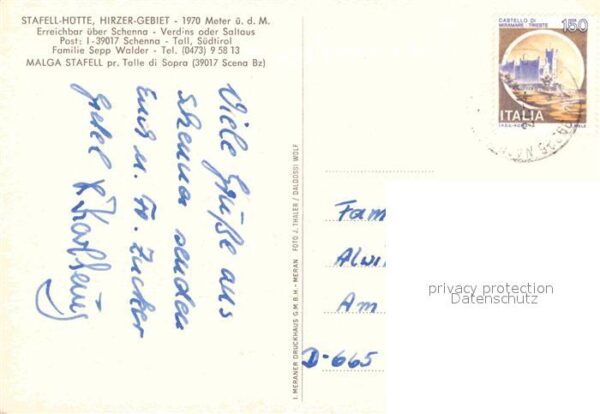 STAFELL-HÜTTE, HIRZER-GEBIET - 1970 Meter ü. d. M.
Erreichbar über Schenna - Verdins oder Saltaus
Post: I-39017 Schenna - Tall, Südtirol
Familie Sepp Walder - Tel. (0473) 9 58 13
MALGA STAFELL pr. Talle di Sopra (39017 Scena Bz)
Viele Grüße aus
Schenna senden
Euch u. Fr. Zucker
Gretel
I. MERANER DRUCKHAUS G.M.B.H. - MERAN FOTO J. THALER / DALDOSSI WOLF
CASTELLO DI
MIRAMARE - TRIESTE
150
ITALIA
Fam
Alwi
Am
D-665
privacy protection
Datenschutz